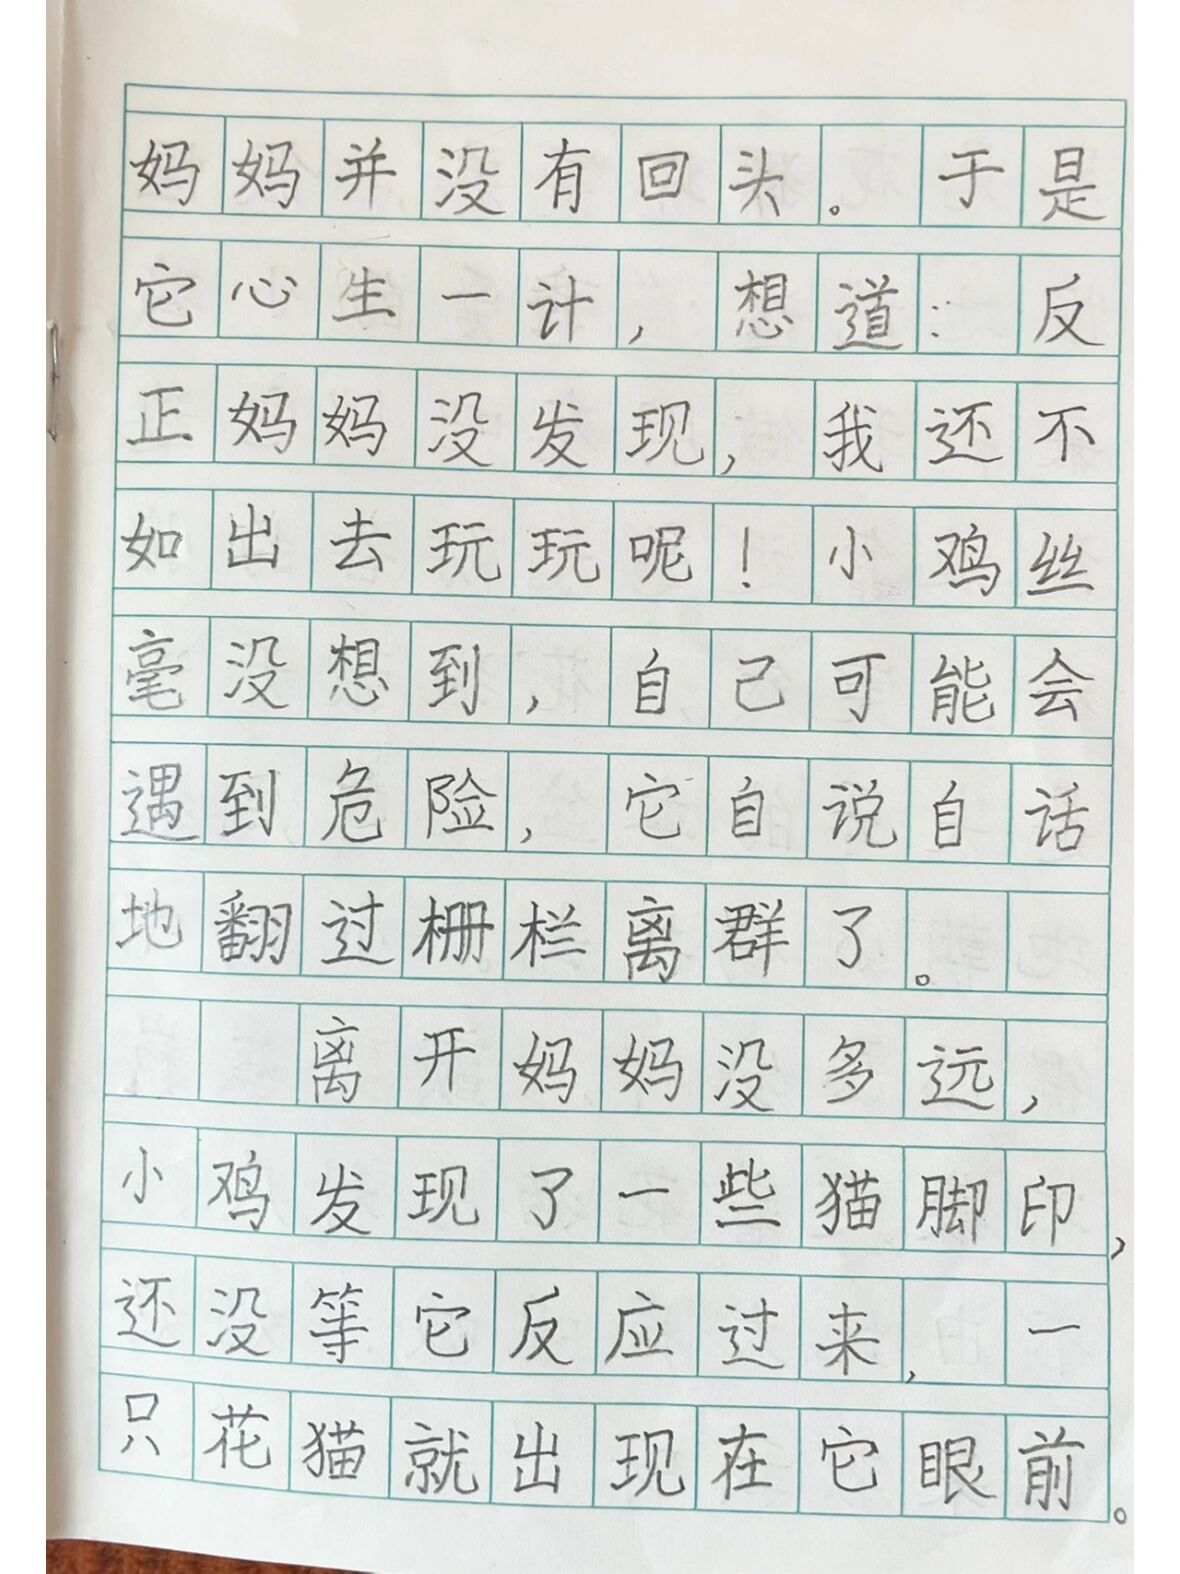 妈妈并没有回头。于是
它心生一计，想道：反
正妈妈没发现，我还不
如出去玩玩呢！小鸡丝
毫没想到，自己可能会
遇到危险，它自说自话
地翻过栅栏离群了。
离开妈妈没多远，
小鸡发现了一些猫脚印，
还没等它反应过来，一
只花猫就出现在它眼前。